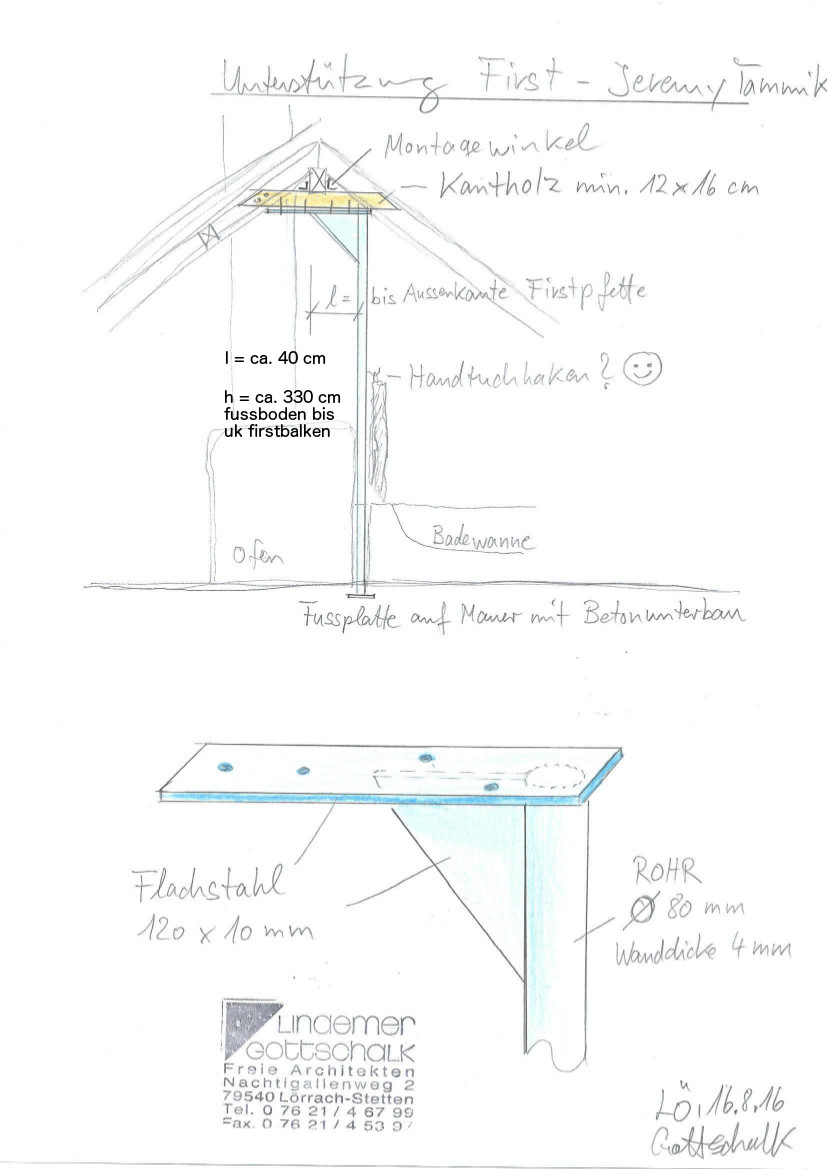 Unterstützung First - Jeremy Tammik
Montagewinkel
Kantholz min. 12 x 16 cm
l = bis Aussenkante Firstpfette
l = ca. 40 cm
Handtuchhaken? ☺
h = ca. 330 cm
fussboden bis
uk firstbalken
Ofen
Badewanne
Fussplatte auf Mauer mit Betonunterbau
Flachstahl
120 x 10 mm
ROHR
Ø 80 mm
Wanddicke 4 mm
LINDEMER
GOTTSCHALK
Freie Architekten
Nachtigallenweg 2
79540 Lörrach-Stetten
Tel. 0 76 21 / 4 67 99
Fax. 0 76 21 / 4 53 9
LÖ, 16.8.16
Gottschalk